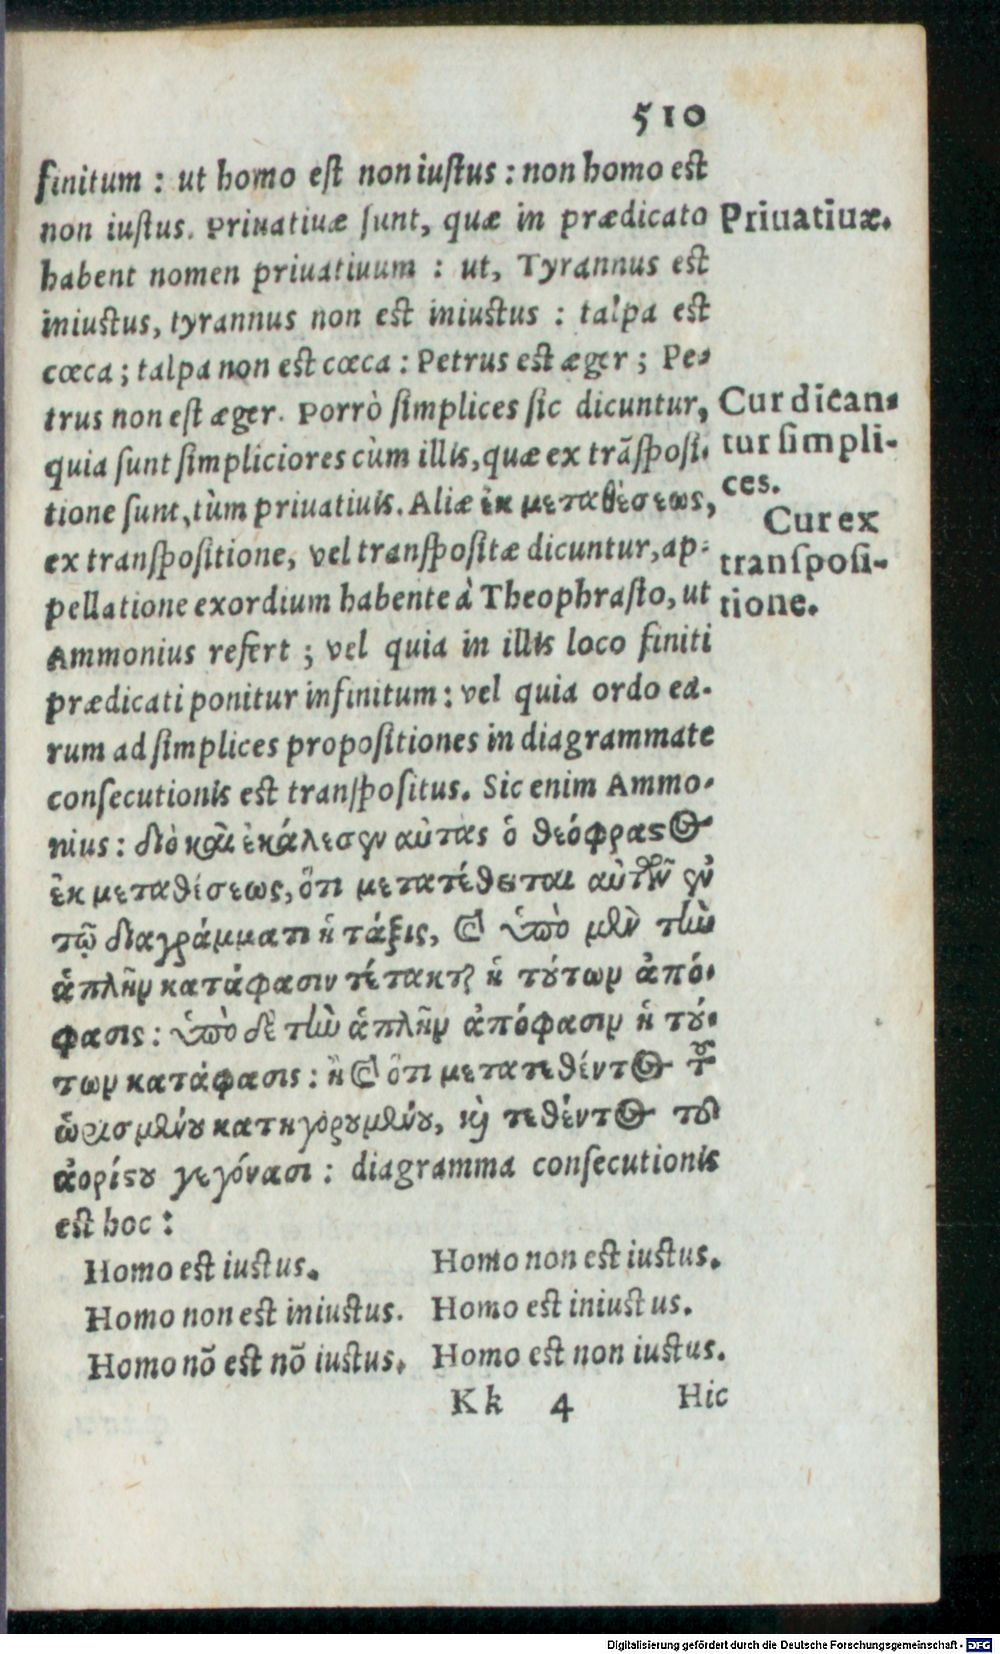 510
finitum : ut homo est non iustus : non homo est
non iustus. Priuatiuæ sunt, quæ in prædicato
Priuatiuæ.
habent nomen priuatiuum : ut, Tyrannus est
iniustus, tyrannus non est iniustus : talpa est
cœca ; talpa non est cœca : Petrus est æger ; Pe-
trus non est æger. Porrò simplices sic dicuntur,
quia sunt simpliciores cùm illis, quæ ex trãsposi-
tione sunt, tùm priuatiuis. Aliæ ἐκ μεταθέσεως,
Cur dican-
tur simpli-
ces.
ex transpositione, vel transpositæ dicuntur, ap-
pellatione exordium habente à Theophrasto, ut
Cur ex
transposi-
tione.
Ammonius refert ; vel quia in illis loco finiti
prædicati ponitur infinitum : vel quia ordo ea-
rum ad simplices propositiones in diagrammate
consecutionis est transpositus. Sic enim Ammo-
nius : διὸ καὶ ἐκάλεσεν αὐτας ὁ θεόφραστος
ἐκ μεταθέσεως, ὅτι μετατέθειται αὐτῶν ἐν
τῷ διαγράμματι ἡ τάξις, καὶ ὑπὸ μὲν τὴν
ἁπλῆν κατάφασιν τέτακται ἡ τούτων ἀπό-
φασις : ὑπὸ δὲ τὴν ἁπλῆν ἀπόφασιν ἡ τού-
των κατάφασις : ἢ καὶ ὅτι μετατεθέντος τοῦ
ὡρισμένου κατηγορουμένου, καὶ τεθέντος τοῦ
ἀορίστου γεγόνασι : diagramma consecutionis
est hoc :
Homo est iustus. Homo non est iustus.
Homo non est iniustus. Homo est iniustus.
Homo nõ est nõ iustus. Homo est non iustus.
Kk 4 Hic
Digitalisierung gefördert durch die Deutsche Forschungsgemeinschaft - DFG